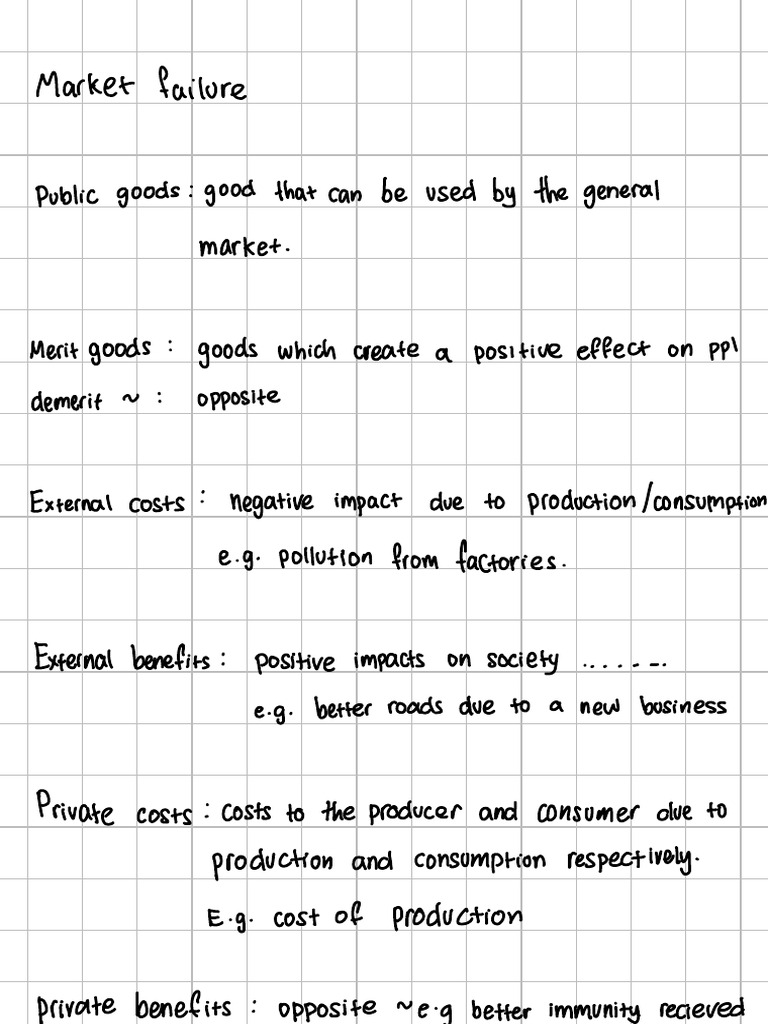 Market failure
Public goods : good that can be used by the general
market.
Merit goods : goods which create a positive effect on ppl
demerit ~ : opposite
External costs : negative impact due to production/consumption
e.g. pollution from factories.
External benefits : positive impacts on society ........
e.g. better roads due to a new business
Private costs : costs to the producer and consumer due to
production and consumption respectively.
E.g. cost of production
private benefits : opposite ~ e.g better immunity recieved